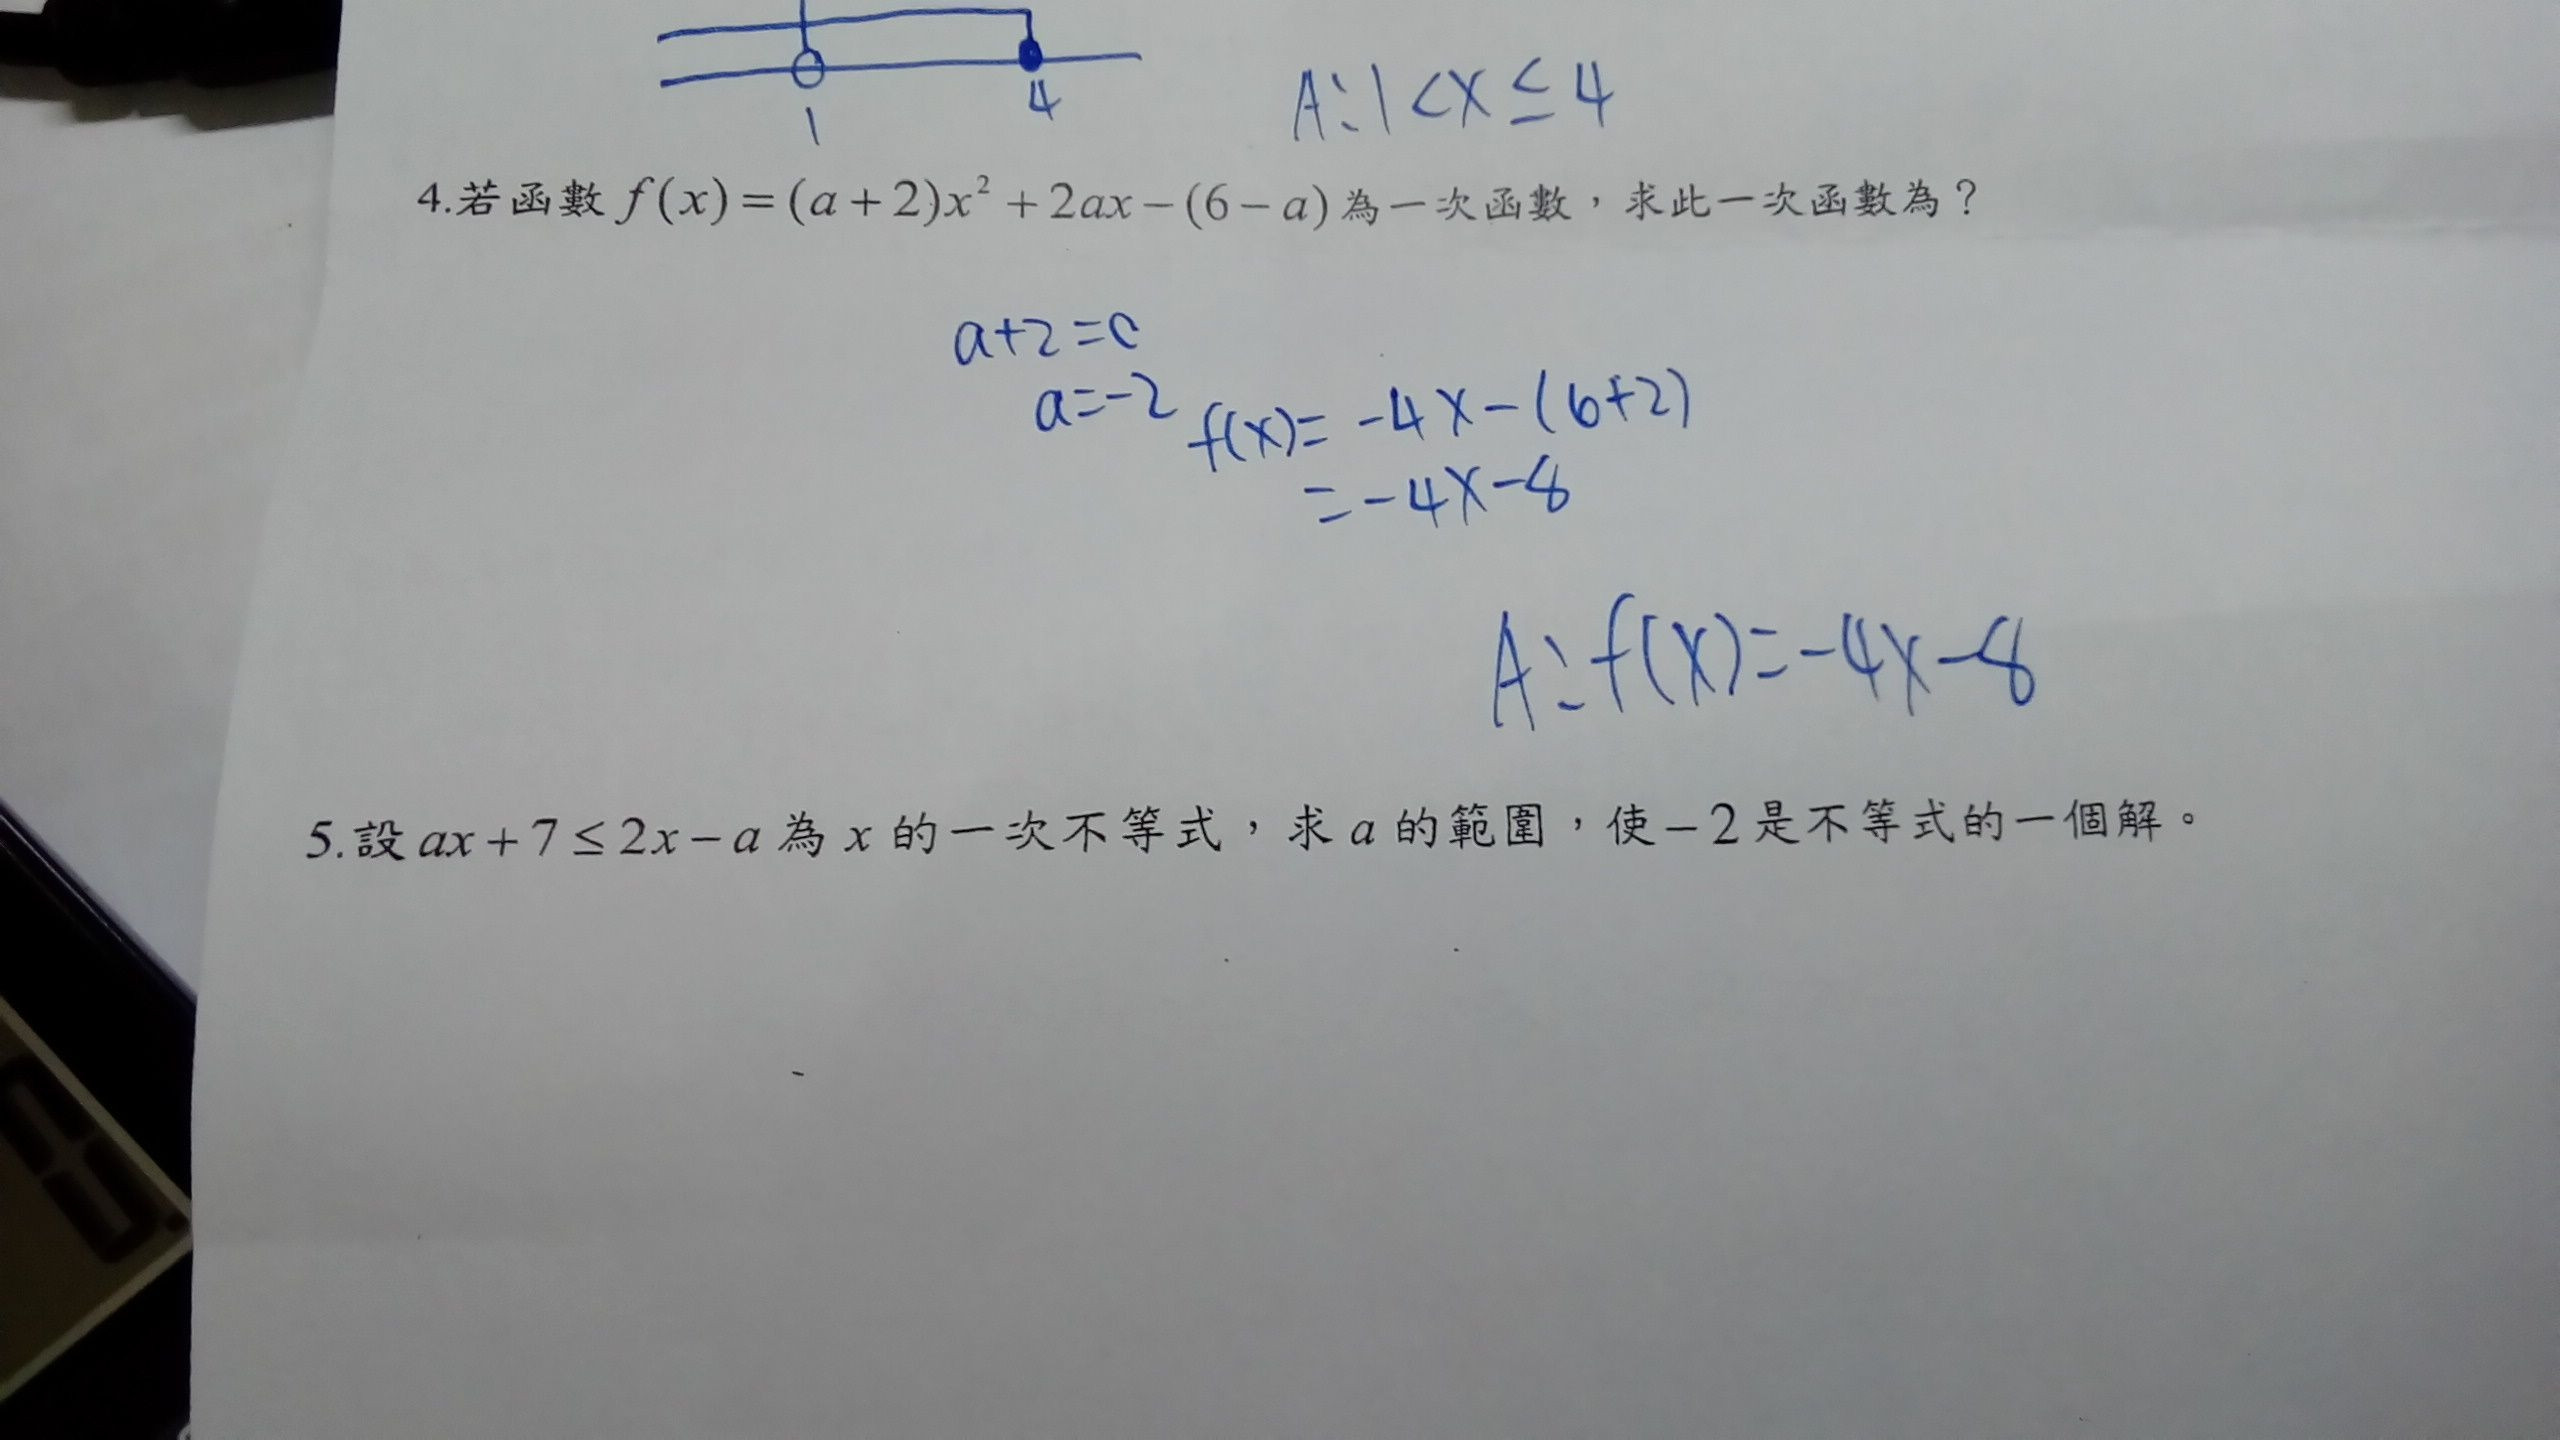 1 4 A:1<x≤4
4.若函數 f(x)=(a+2)x²+2ax−(6−a)為一次函數，求此一次函數為？
a+2=0
a=-2 f(x)=-4x-(6+2)
=-4x-8
A:f(x)=-4x-8
5.設 ax+7≤2x−a 為 x 的一次不等式，求 a 的範圍，使−2是不等式的一個解。